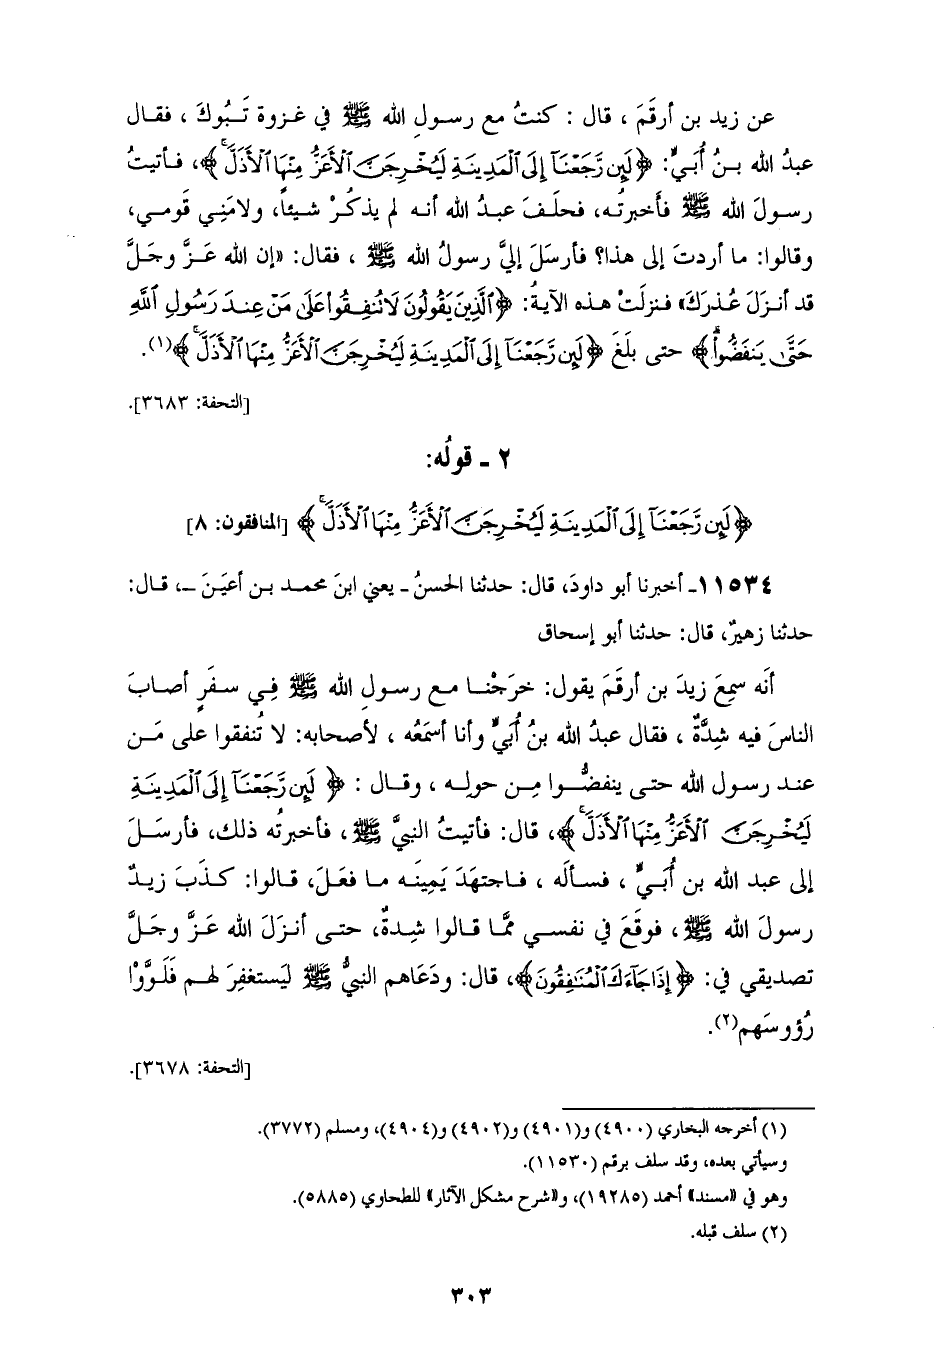 عن زيد بن أرقَمَ ، قال : كنتُ مع رسولِ الله ﷺ في غزوة تَبُوكَ ، فقال
عبدُ الله بنُ أُبَيٍّ: ﴿لَئِن رَّجَعْنَآ إِلَى ٱلْمَدِينَةِ لَيُخْرِجَنَّ ٱلْأَعَزُّ مِنْهَا ٱلْأَذَلَّ ۚ﴾، فأتيتُ
رسولَ الله ﷺ فأخبرتُه، فحلَفَ عبدُ الله أنه لم يذكُرْ شيئاً، ولامَنِي قَومي،
وقالوا: ما أردتَ إلى هذا؟ فأرسَلَ إليَّ رسولُ الله ﷺ ، فقال: «إن الله عَزَّ وجَلَّ
قد أنزَلَ عُذرَكَ» فنزلَتْ هذه الآيةُ: ﴿ٱلَّذِينَ يَقُولُونَ لَا تُنفِقُواْ عَلَىٰ مَنْ عِندَ رَسُولِ ٱللَّهِ
حَتَّىٰ يَنفَضُّواْ ۗ﴾ حتى بلَغَ ﴿لَئِن رَّجَعْنَآ إِلَى ٱلْمَدِينَةِ لَيُخْرِجَنَّ ٱلْأَعَزُّ مِنْهَا ٱلْأَذَلَّ ۚ﴾(١).
[التحفة: ٣٦٨٣].
٢ ـ قولُه:
﴿لَئِن رَّجَعْنَآ إِلَى ٱلْمَدِينَةِ لَيُخْرِجَنَّ ٱلْأَعَزُّ مِنْهَا ٱلْأَذَلَّ ۚ﴾ [المنافقون: ٨]
١١٥٣٤ـ أخبرنا أبو داودَ، قال: حدثنا الحسنُ ـ يعني ابنَ محمد بن أعيَنَ ـ، قال:
حدثنا زهيرٌ، قال: حدثنا أبو إسحاق
أنَه سمِعَ زيدَ بن أرقَمَ يقول: خرَجْنا مع رسولِ الله ﷺ فِي سفَرٍ أصابَ
الناسَ فيه شِدَّةٌ ، فقال عبدُ الله بنُ أُبَيٍّ وأنا أسمَعُه ، لأصحابه: لا تُنفقوا على مَن
عند رسول الله حتى ينفضُّوا مِن حولِه ، وقال : ﴿ لَئِن رَّجَعْنَآ إِلَى ٱلْمَدِينَةِ
لَيُخْرِجَنَّ ٱلْأَعَزُّ مِنْهَا ٱلْأَذَلَّ ۚ﴾، قال: فأتيتُ النبيَّ ﷺ ، فأخبرتُه ذلك، فأرسَلَ
إلى عبد الله بن أُبَيٍّ ، فسأله ، فاجتهَدَ يَمِينَه ما فعَلَ، قالوا: كذَبَ زيدٌ
رسولَ الله ﷺ ، فوقَعَ في نفسي ممَّا قالوا شِدةٌ، حتى أنزَلَ الله عَزَّ وجَلَّ
تصديقي في: ﴿إِذَا جَآءَكَ ٱلْمُنَٰفِقُونَ﴾، قال: ودَعَاهم النبيُّ ﷺ ليَستغفِرَ لهم فَلَوَّوْا
رُؤوسَهم(٢).
[التحفة: ٣٦٧٨].
(١) أخرجه البخاري (٤٩٠٠) و(٤٩٠١) و(٤٩٠٢) و(٤٩٠٤)، ومسلم (٣٧٧٢).
وسيأتي بعده، وقد سلف برقم (١١٥٣٠).
وهو في «مسند» أحمد (١٩٢٨٥)، و«شرح مشكل الآثار» للطحاوي (٥٨٨٥).
(٢) سلف قبله.
٣٠٣